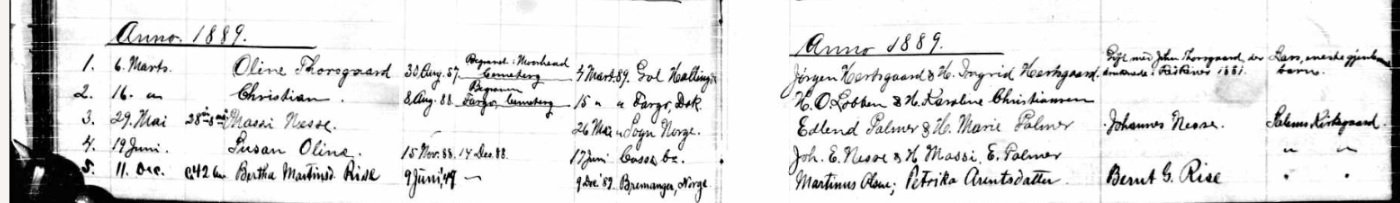 Anno. 1889. Anno 1889.
1. 6. Marts. Oline Thorsgaard 30 Aug. 57. Begravet i Moorhead Cemeterg 4 Mart. 89. Gol Halling Jørgen Hertsgaard & H. Ingrid Hertsgaard. Gift med John Thorsgaard, der Lars, eneste gjenlev. barn.
2. 16. " Christian. 8 Aug. 88. Begraven Fargo, Cemeterg 15 " " Fargo, Dak. H. O. Lobben & H. Karoline Christiansen
3. 29. Mai Massi Nesse. 26 Mai " Sogn Norge. Edlend Palmer & H. Marie Palmer Johannes Nesse. Salems Kirkegaard
4. 19 Juni. Susan Oline. 15 Nov. 88. 14 Des. 88. 17 Juni Casse Co. Joh. E. Nesse & H Massi E. Palmer " "
5. 11. Dec. 42 Bertha Martinsd. Rise 9 Juni '49 — 9 Dec '89. Bremanger, Norge Martinus Olsen; Petrika Arentsdatter. Bernt G. Rise " "